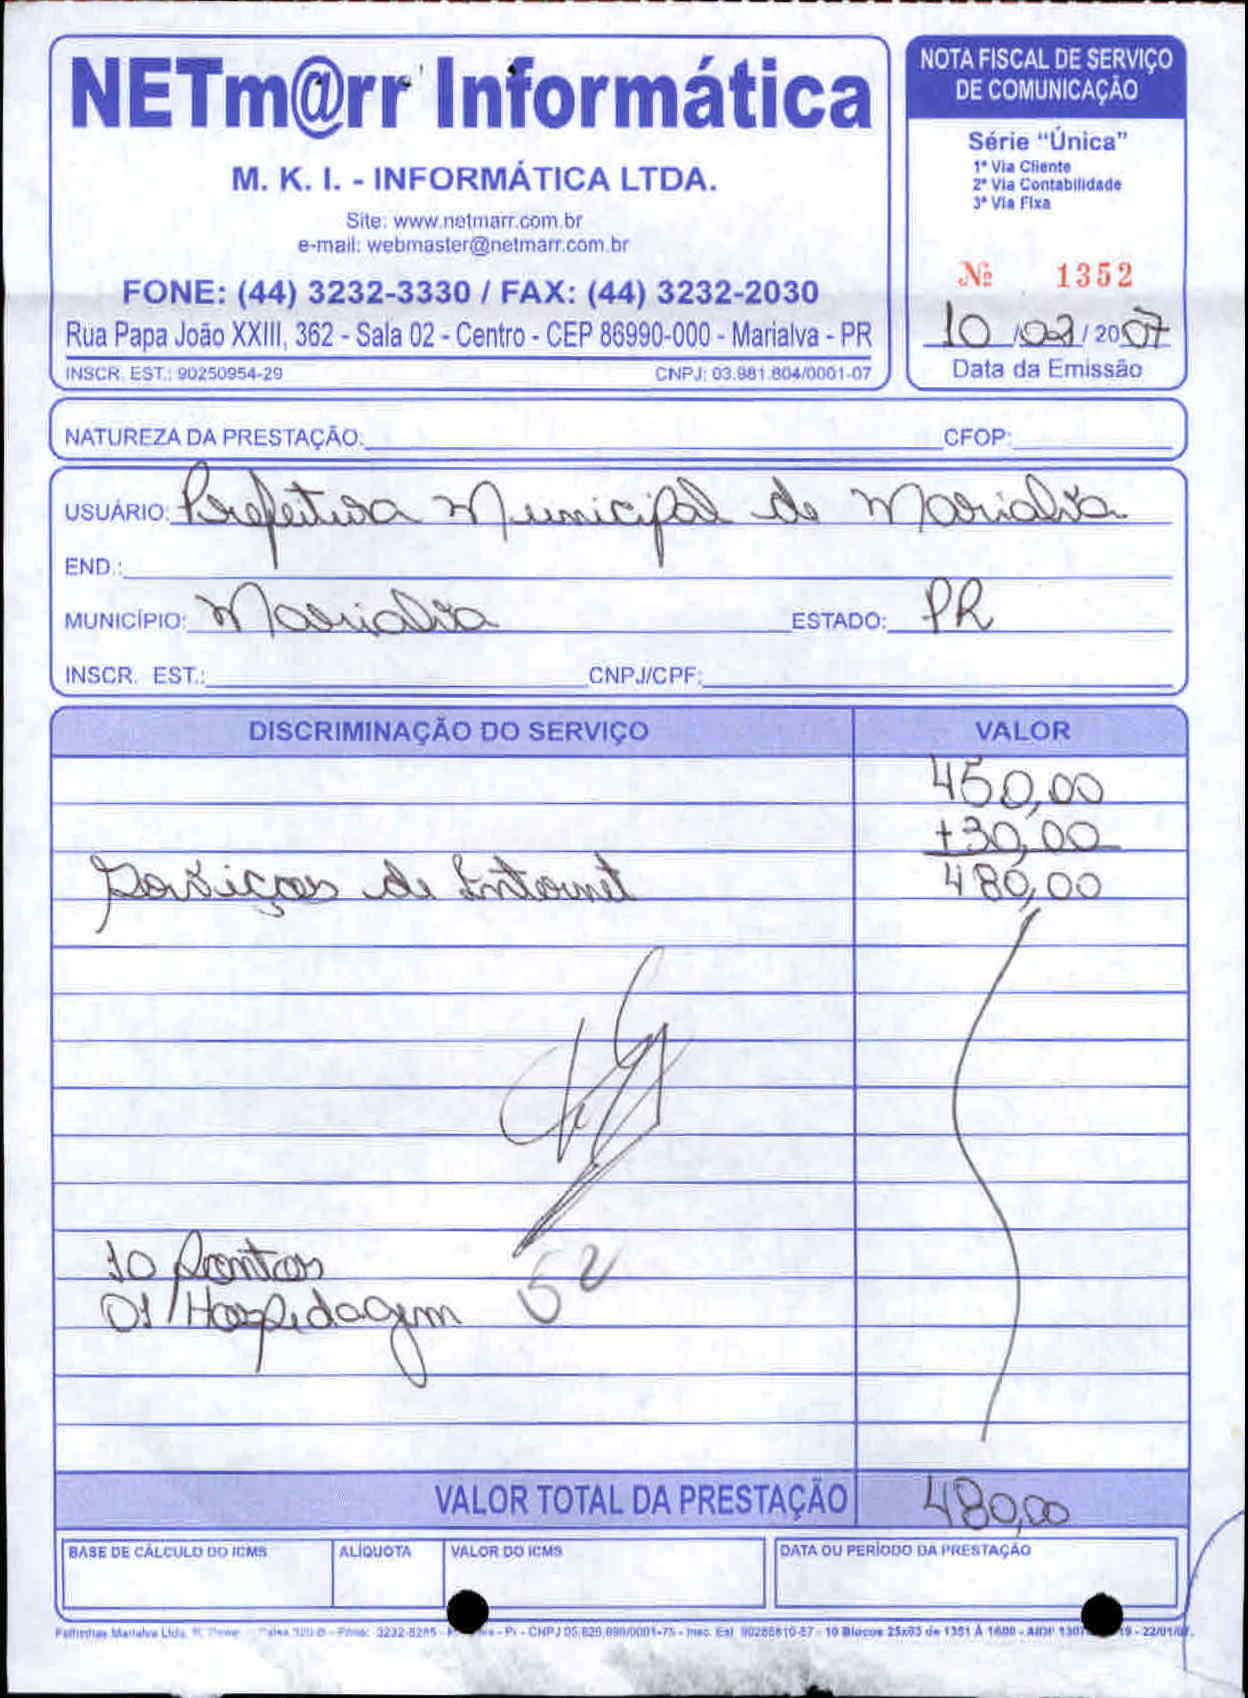 NETm@rr Informática
M. K. I. - INFORMÁTICA LTDA.
Site: www.netmarr.com.br
e-mail: webmaster@netmarr.com.br
FONE: (44) 3232-3330 / FAX: (44) 3232-2030
Rua Papa João XXIII, 362 - Sala 02 - Centro - CEP 86990-000 - Marialva - PR
INSCR. EST.: 90250954-29 CNPJ: 03.981.804/0001-07
NOTA FISCAL DE SERVIÇO
DE COMUNICAÇÃO
Série "Única"
1ª Via Cliente
2ª Via Contabilidade
3ª Via Fixa
Nº 1352
10 / 02 / 2007
Data da Emissão
NATUREZA DA PRESTAÇÃO: CFOP:
USUÁRIO: Prefeitura Municipal de Marialva
END.:
MUNICÍPIO: Marialva ESTADO: PR
INSCR. EST.: CNPJ/CPF:
DISCRIMINAÇÃO DO SERVIÇO VALOR
450,00
+30,00
Serviços de Internet 480,00
10 Pontos
01 Hospedagem 52
VALOR TOTAL DA PRESTAÇÃO 480,00
BASE DE CÁLCULO DO ICMS ALÍQUOTA VALOR DO ICMS DATA OU PERÍODO DA PRESTAÇÃO
Marialva Ltda. 3232-8265 - CNPJ 10 Blocos 25x03 de 1351 À 1600 - AIDF